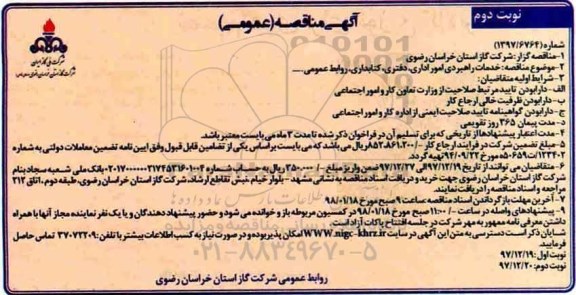 نوبت دوم
آگهی مناقصه (عمومی)
شماره (۱۳۹۷/۶۷۶۴)
شرکت ملی گاز ایران
شرکت گاز استان خراسان رضوی
۱- مناقصه گزار: شرکت گاز استان خراسان رضوی
۲- موضوع مناقصه: خدمات راهبردی امور اداری، دفتری، کتابداری، روابط عمومی...
۳- شرایط اولیه متقاضیان:
الف- دارا بودن تایید مرتبط صلاحیت از وزارت تعاون کار و امور اجتماعی
ب- دارا بودن ظرفیت خالی ارجاع کار
ج- دارا بودن گواهینامه تایید صلاحیت ایمنی از اداره کار و امور اجتماعی
د- مدت پیمان ۳۶۵ روز تقویمی
۴- مدت اعتبار پیشنهادها از تاریخی که برای تسلیم آن در فراخوان ذکر شده تا مدت ۳ ماه می بایست معتبر باشد.
۵- مبلغ تضمین شرکت در فرایند ارجاع کار ۸۵۲،۸۶۱،۲۰۰/- ریال می باشد که می بایست براساس یکی از تضامین قابل قبول وفق آیین نامه تضمین معاملات دولتی به شماره ۱۲۳۴۰۲/ت۵۰۶۵۹ه مورخ ۹۴/۰۹/۲۲ تهیه گردد.
۶- متقاضیان می توانند از تاریخ ۹۷/۱۲/۱۹ لغایت ۹۷/۱۲/۲۷ ضمن واریز مبلغ ۳۵۰،۰۰۰/- ریال به حساب شماره بانک ملی شعبه سجاد بنام شرکت گاز استان خراسان رضوی جهت خرید و دریافت اسناد مناقصه به نشانی مشهد- بلوار خیام نبش تقاطع ارشاد، شرکت گاز استان خراسان رضوی، طبقه دوم، اتاق ۲۱۲ مراجعه و اسناد مناقصه را دریافت نمایند.
۷- آخرین مهلت بارگذاردن اسناد مناقصه ساعت ۹ صبح مورخ ۹۸/۰۱/۱۸
۸- پیشنهادهای واصله در ساعت ۱۱:۰۰/- صبح مورخ ۹۸/۰۱/۱۸ در کمیسیون مربوطه باز و خوانده می شود و حضور پیشنهاد دهندگان و یا یک نفر نماینده مجاز آنها با همراه داشتن معرفی نامه ممهور به مهر شرکت در جلسه افتتاح پاکات آزاد است.
شایان ذکر است دسترسی به متن این آگهی در سایت www.nigc-khrz.ir امکان پذیر بوده و در صورت نیاز به کسب اطلاعات بیشتر با تلفن: ۳۷۰۷۲۲۰۹ تماس حاصل فرمایید.
نوبت اول: ۹۷/۱۲/۱۹
نوبت دوم: ۹۷/۱۲/۲۰
روابط عمومی شرکت گاز استان خراسان رضوی
۰۲۱-۸۸۳۴۹۶۷۰-۵